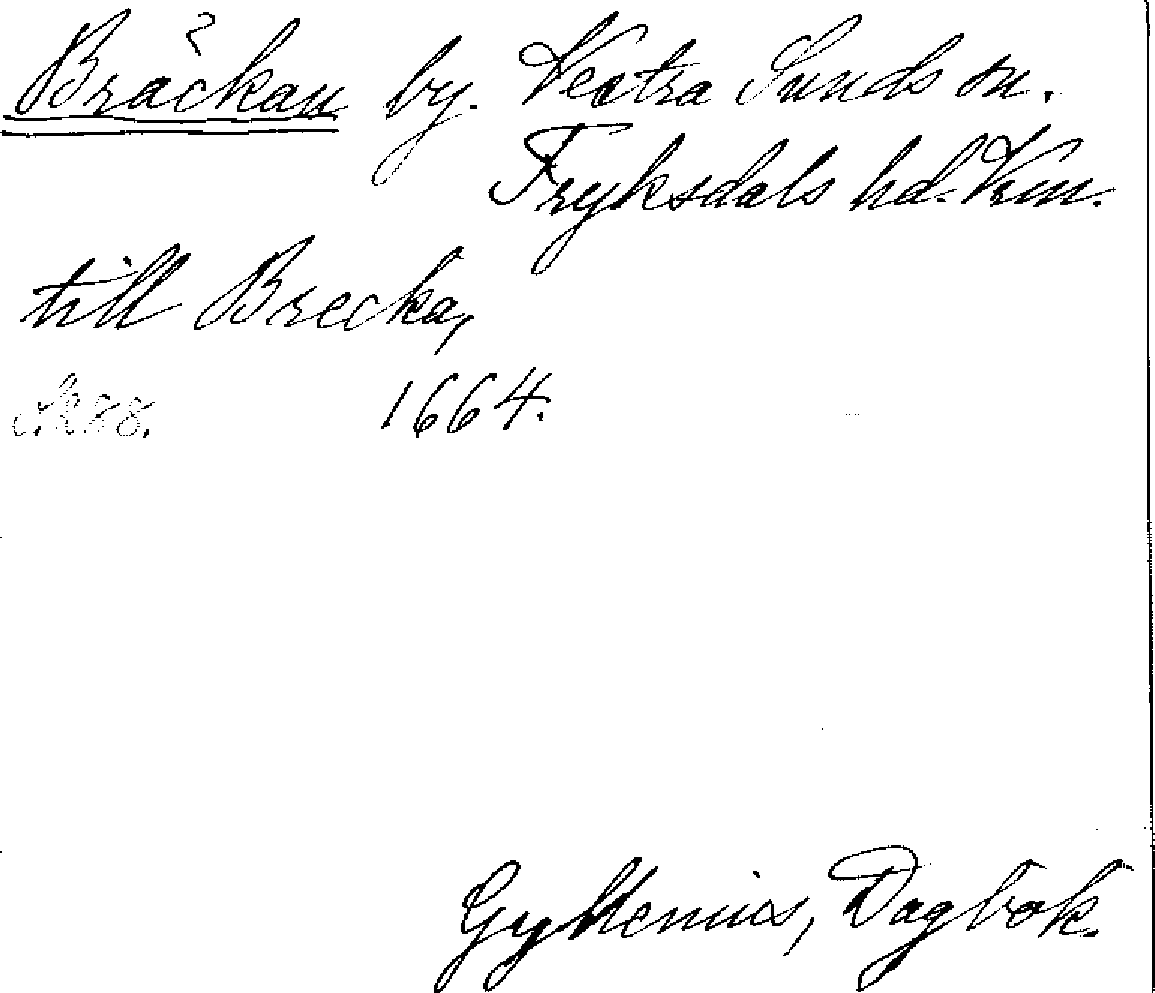 ?
Bräckan by. Vestra Sunds sn.
Fryksdals hd. Vrm.
till Brecka,
1664.
Gyllenius, Dagbok.